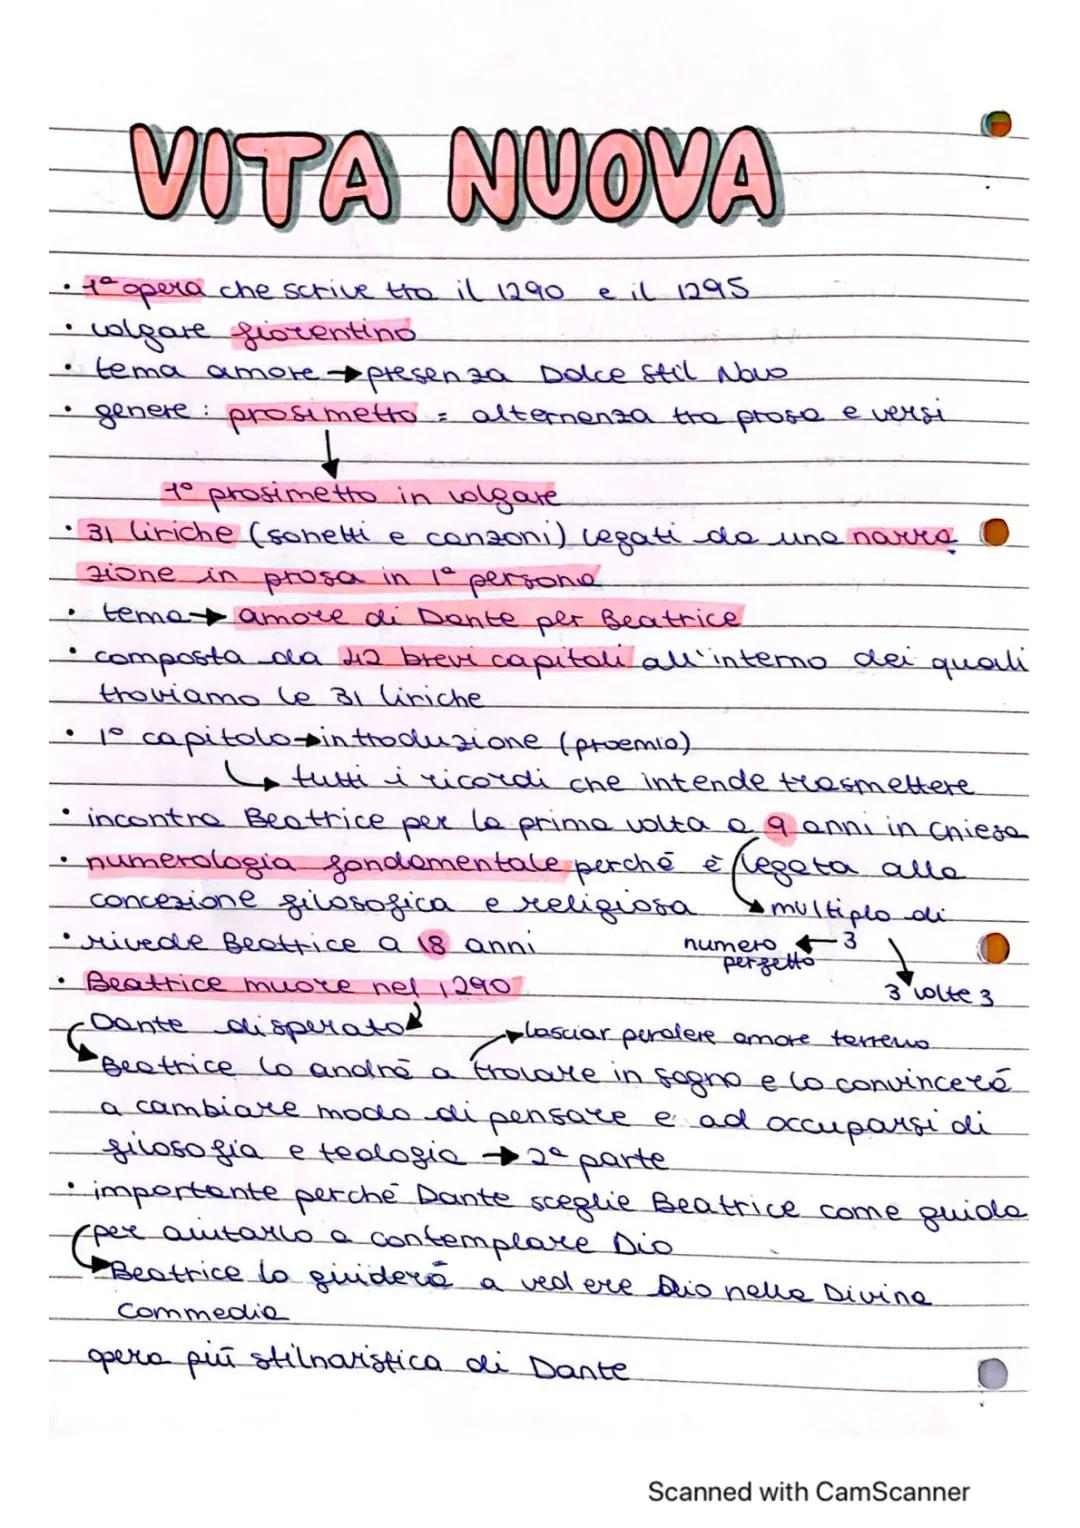 VITA NUOVA
• 1ª opera che scrive tra il 1290 e il 1295
• volgare fiorentino
• tema amore → presenza Dolce Stil Novo
• genere: prosimetto = alternanza tra prosa e versi
↓
1º prosimetto in volgare
• 31 liriche (sonetti e canzoni) legati da una narra
zione in prosa in 1ª persona
• tema → amore di Dante per Beatrice
• composta da 42 brevi capitoli all'interno dei quali
troviamo le 31 liriche
• 1º capitolo → introduzione (proemio)
↳ tutti i ricordi che intende trasmettere
• incontra Beatrice per la prima volta a 9 anni in chiesa
• numerologia fondamentale perché è legata alla
concezione filosofica e religiosa
multiplo di
• rivede Beatrice a 18 anni
numero perfetto ← 3
3 volte 3
• Beatrice muore nel 1290
Dante disperato
→ lasciar perdere amore terreno
Beatrice lo andrà a trovare in sogno e lo convincerà
a cambiare modo di pensare e ad occuparsi di
filosofia e teologia → 2ª parte
• importante perché Dante sceglie Beatrice come guida
per aiutarlo a contemplare Dio
Beatrice lo guiderà a vedere Dio nella Divina
Commedia
opera più stilnovistica di Dante
Scanned with CamScanner